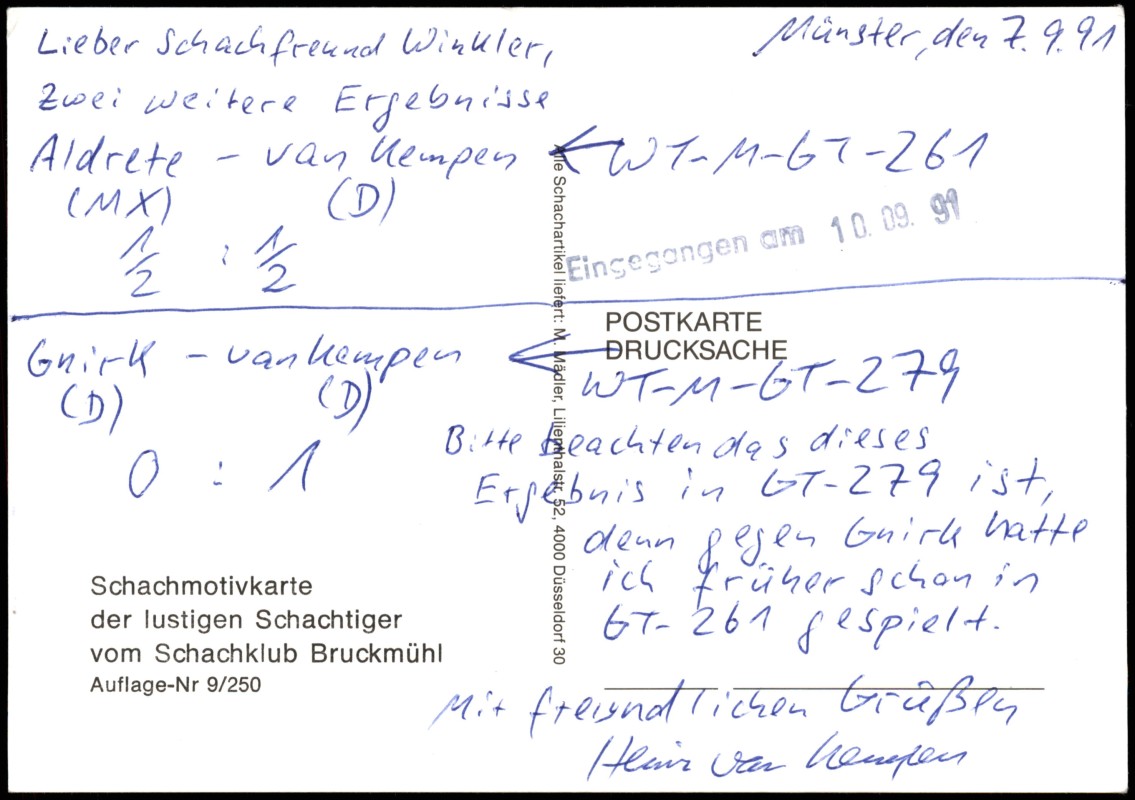 Münster, den 7.9.91
Lieber Schachfreund Winkler,
Zwei weitere Ergebnisse
Aldrete - van Kempen ← WT-M-GT-261
(MX) (D)
1/2 : 1/2
Eingegangen am 10. 09. 91
Gnirk - van Kempen ← WT-M-GT-279
(D) (D)
0 : 1
POSTKARTE
DRUCKSACHE
Bitte beachten das dieses
Ergebnis in GT-279 ist,
denn gegen Gnirk hatte
ich früher schon in
GT-261 gespielt.
Mit freundlichen Grüßen
Heinz van Kempen
Alle Schachartikel liefert: M. Mädler, Lilienthalstr. 52, 4000 Düsseldorf 30
Schachmotivkarte
der lustigen Schachtiger
vom Schachklub Bruckmühl
Auflage-Nr 9/250